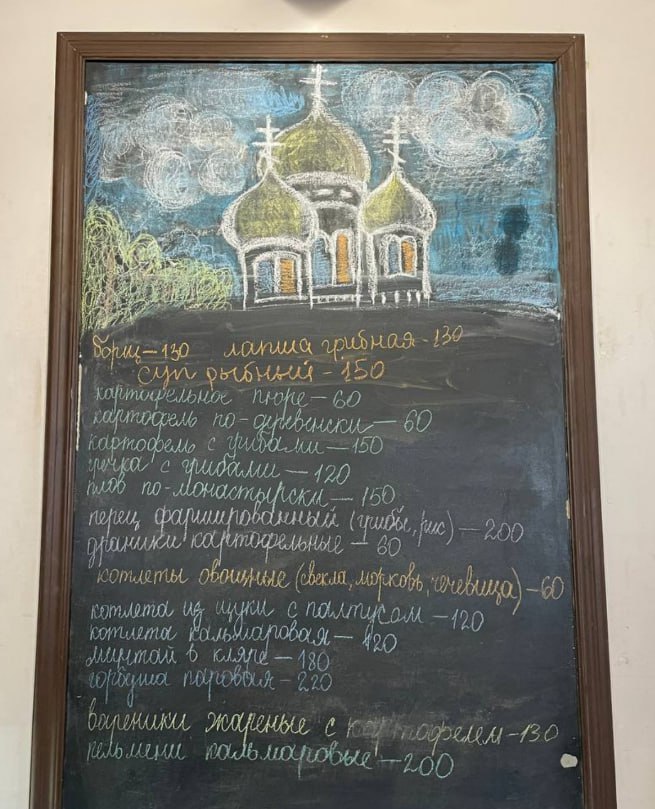 борщ – 130 лапша грибная - 130
суп рыбный - 150
картофельное пюре – 60
картофель по-деревенски – 60
картофель с грибами – 150
гречка с грибами – 120
плов по-монастырски – 150
перец фаршированный (грибы, рис) – 200
драники картофельные – 60
котлеты овощные (свекла, морковь, чечевица) – 60
котлета из щуки с палтусом – 120
котлета кальмаровая – 120
минтай в кляре – 180
горбуша паровая - 220
вареники жареные с картофелем - 130
пельмени кальмаровые – 200